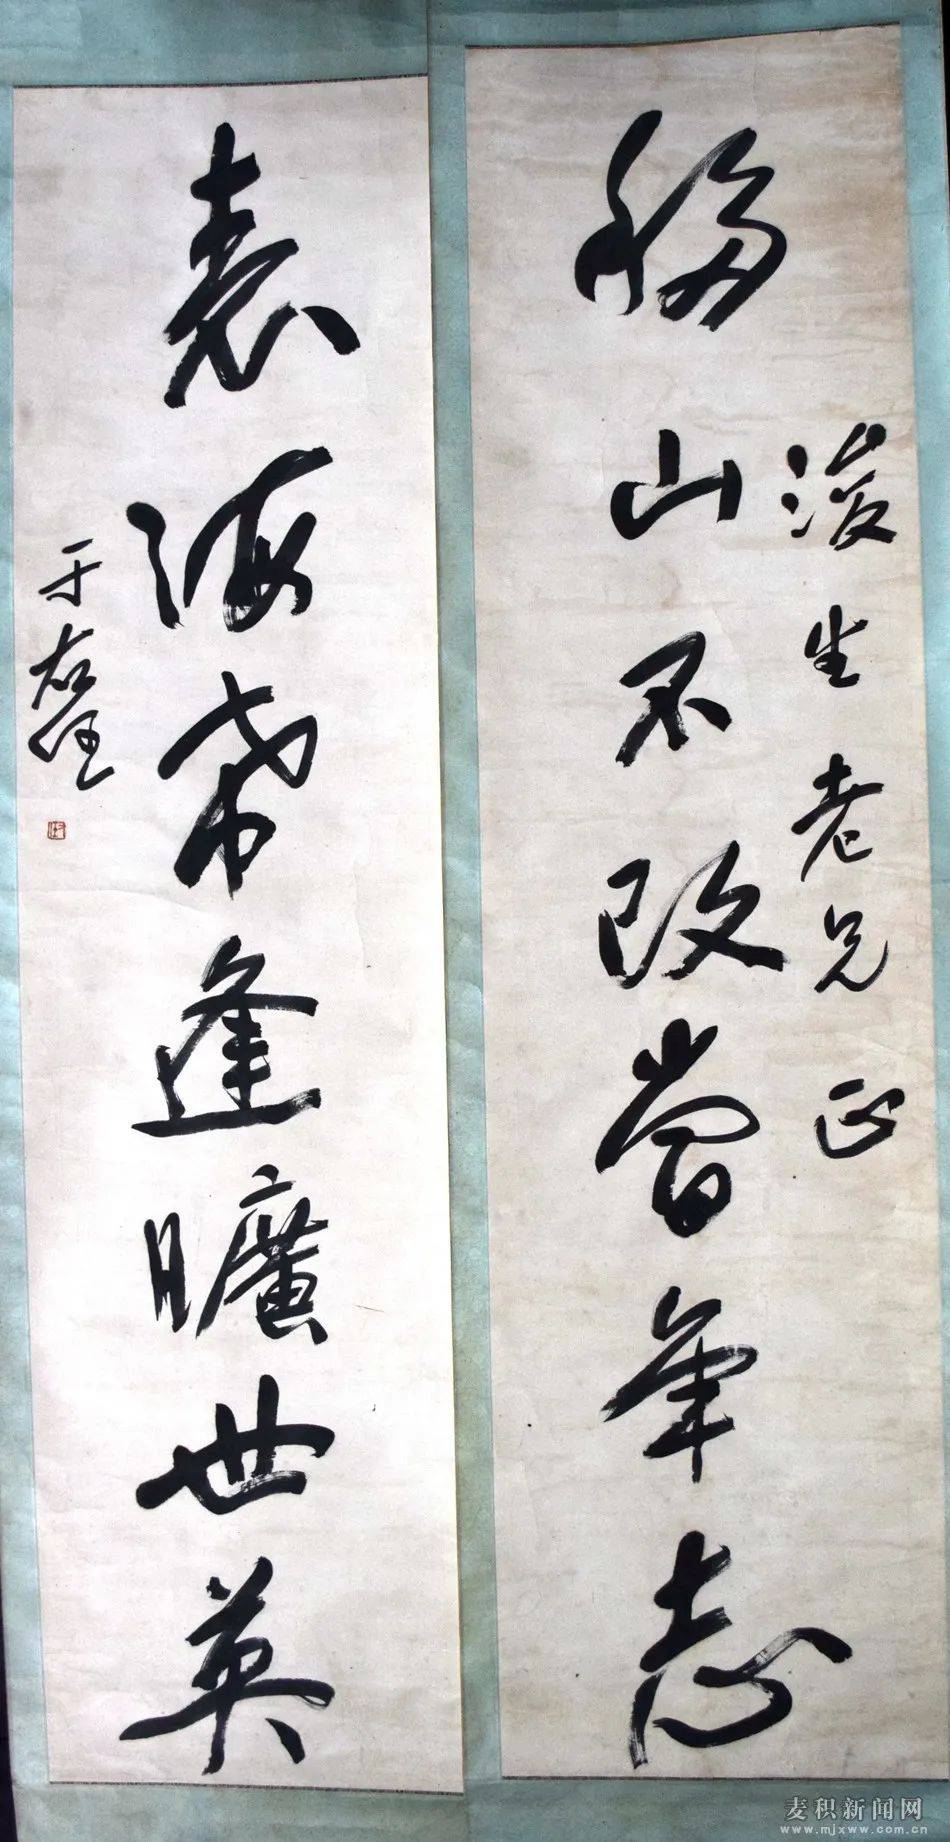 移山不改当年志
浚生老兄正
表海希逢曠世英
于右任
麦积新闻网
www.mjxww.com.cn